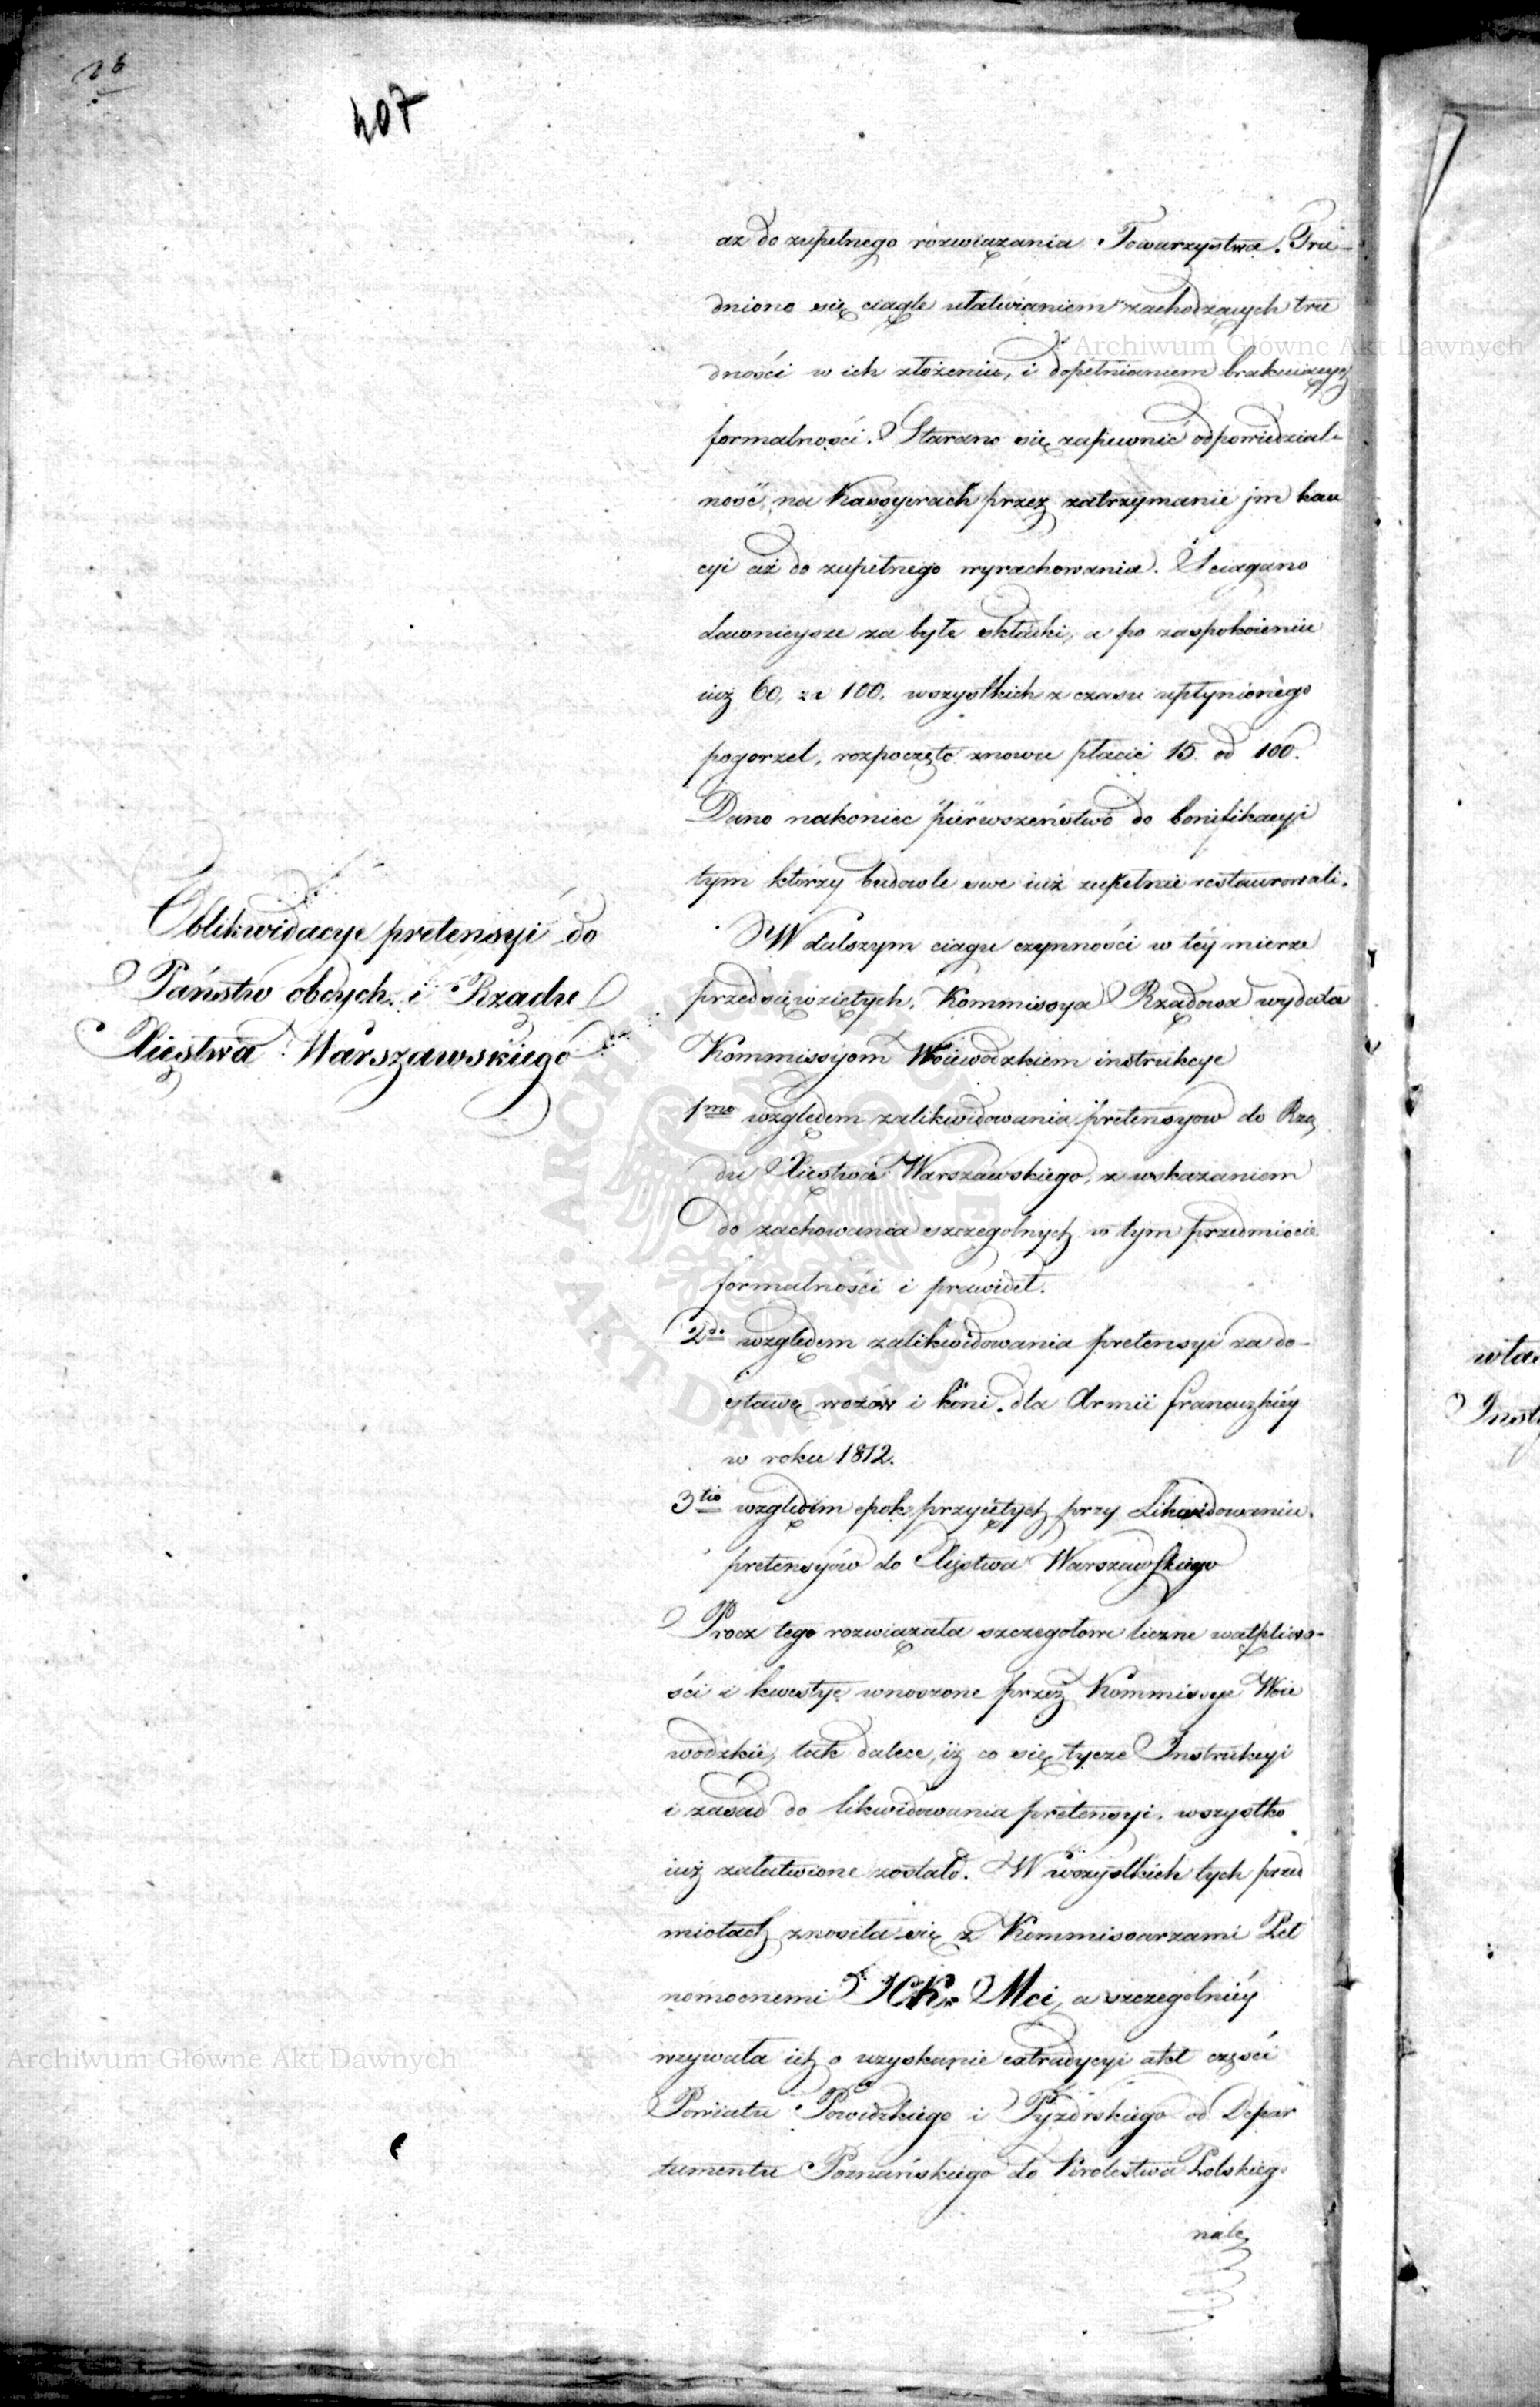 26
407
aż do zupełnego rozwiązania Towarzystwa. Tru-
dniono się ciągle ułatwianiem zachodzących tru
dności w ich złożeniu, i dopełnianiem brakuiących
formalności. Starano się zapewnić odpowiedzial-
ność na Kassyerach przez zatrzymanie jm kau
cyi aż do zupełnego wyrachowania. Sciągano
dawnieysze za byłe składki, a po zaspokoieniu
iuż 60, za 100. wszystkich z czasu upłynionego
pogorzel, rozpoczęto znowu płacić 15. od 100.
Dano nakoniec pierwszeństwo do bonifikacyi
tym którzy budowle swe iuż zupełnie restaurowali.
Oblikwidacye pretensyi do
Państw obcych i Rządu
Xięstwa Warszawskiego
W dalszym ciągu czynności w téy mierze
przedsięwziętych, Kommissya Rządowa wydała
Kommissyom Woiewodzkiem instrukcye
1mo względem zalikwidowania pretensyow do Rzą
du Xięstwa Warszawskiego, z wskazaniem
do zachowania szczegolnych w tym przedmiocie
formalności i prawideł.
2do względem zalikwidowania pretensyi za do-
stawę wozów i koni dla Armii francuzkiéy
w roku 1812.
3tio względem epok przyiętych przy Likwidowaniu
pretensyów do Xięstwa Warszawskiego
Procz tego rozwiązała szczegołowe liczne wątpliwo-
ści i kwestye wnoszone przez Kommissye Woie
wodzkie, tak dalece, iż co się tycze Instrukcyi
i zasad do likwidowania pretensyi, wszystko
iuż załatwione zostało. W wszystkich tych przed
miotach znosiła się z Kommissarzami Peł
nomocnemi JCK. Mci, a szczegolniéy
wzywała ich o uzyskanie extradycyi akt części
Powiatu Powidzkiego i Pyzdrskiego od Depar
tamentu Poznańskiego do Krolestwa Polskiego
nale
wła
Inst
Archiwum Główne Akt Dawnych
Archiwum Główne Akt Dawnych